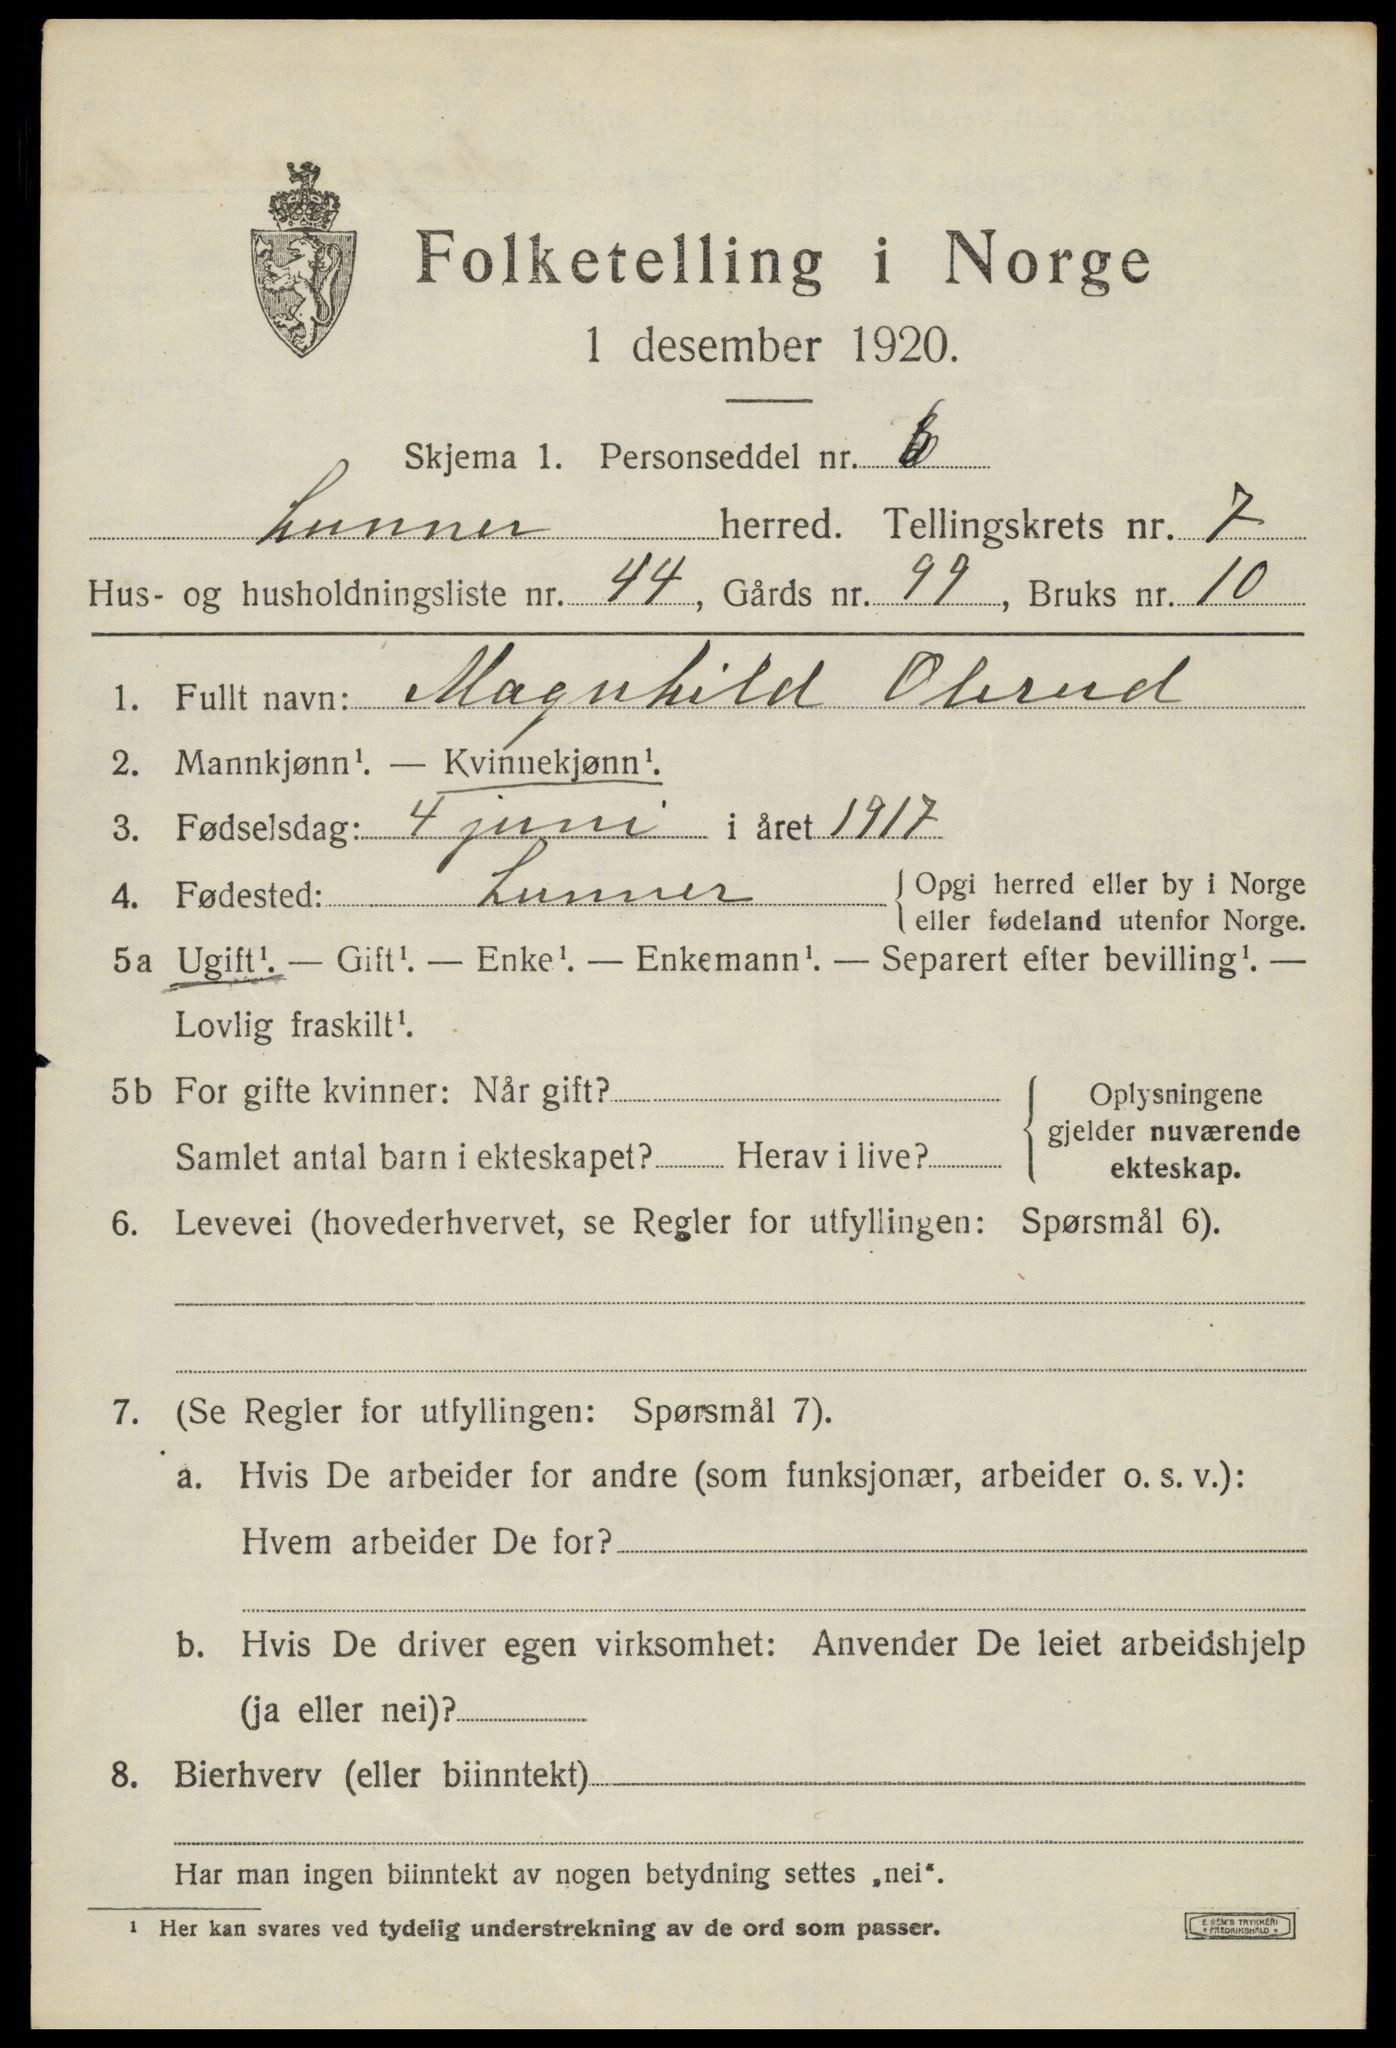 Folketelling i Norge
1 desember 1920.
Skjema 1. Personseddel nr. 6
Lunner herred. Tellingskrets nr. 7
Hus- og husholdningsliste nr. 44, Gårds nr. 99, Bruks nr. 10
1. Fullt navn: Magnhild Olsrud
2. Mannkjønn¹. — Kvinnekjønn¹.
3. Fødselsdag: 4 juni i året 1917
4. Fødested: Lunner { Opgi herred eller by i Norge
eller fødeland utenfor Norge.
5a Ugift¹. — Gift¹. — Enke¹. — Enkemann¹. — Separert efter bevilling¹. —
Lovlig fraskilt¹.
5b For gifte kvinner: Når gift?
Samlet antal barn i ekteskapet? Herav i live?
{ Oplysningene
gjelder nuværende
ekteskap.
6. Levevei (hovederhvervet, se Regler for utfyllingen: Spørsmål 6).
7. (Se Regler for utfyllingen: Spørsmål 7).
a. Hvis De arbeider for andre (som funksjonær, arbeider o. s. v.):
Hvem arbeider De for?
b. Hvis De driver egen virksomhet: Anvender De leiet arbeidshjelp
(ja eller nei)?
8. Bierhverv (eller biinntekt)
Har man ingen biinntekt av nogen betydning settes „nei“.
¹ Her kan svares ved tydelig understrekning av de ord som passer.
E. SEM'S TRYKKERI
FREDRIKSHALD